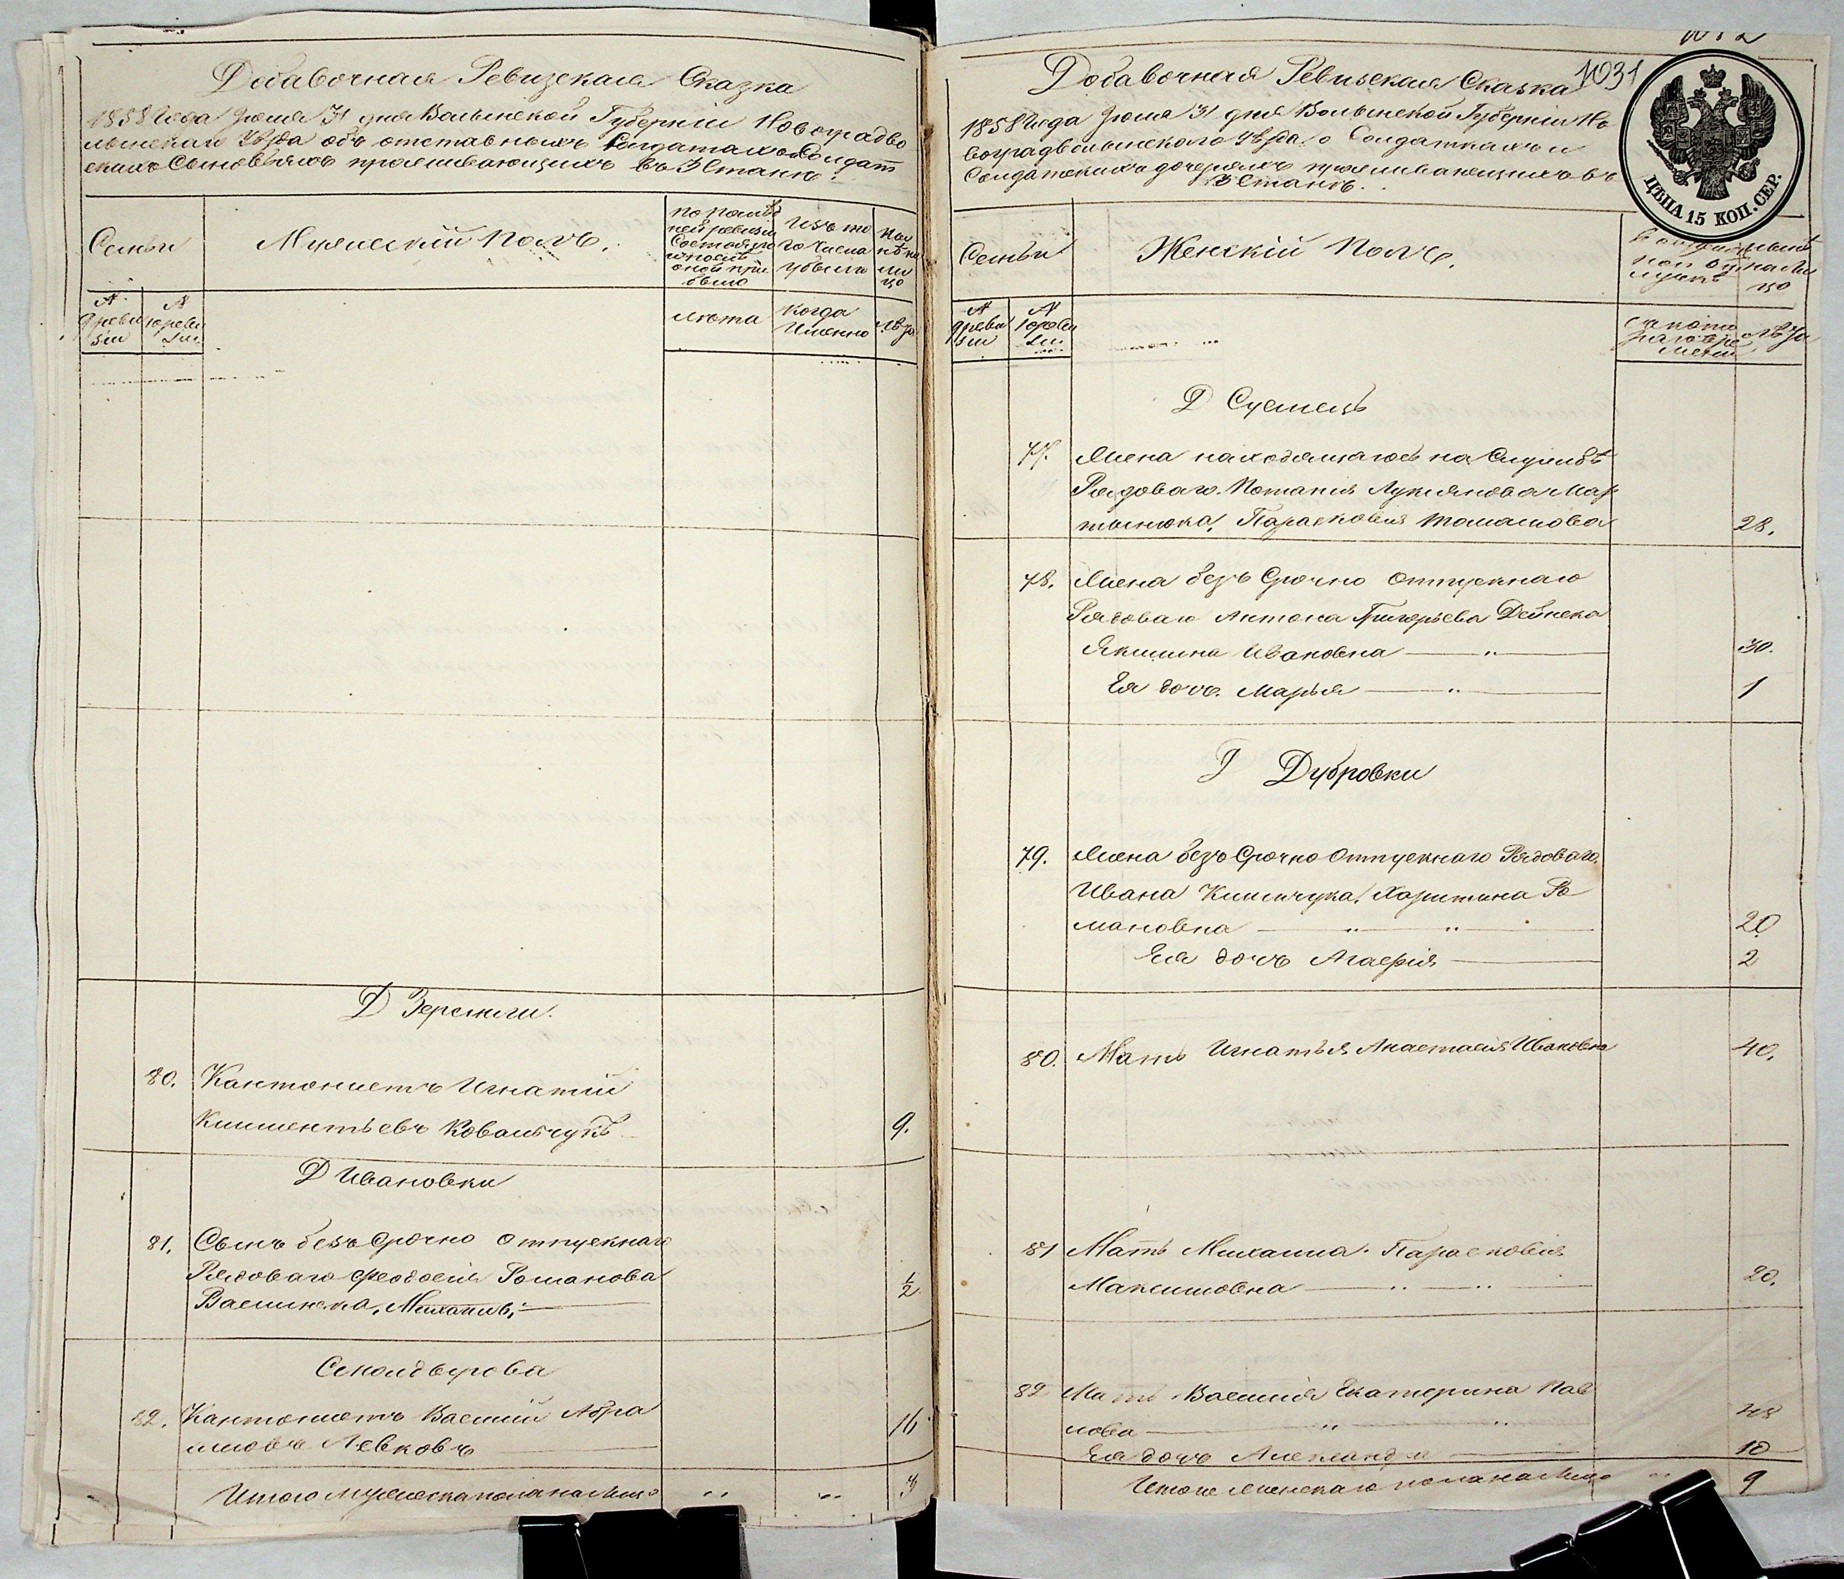 Добавочная Ревизская Сказка
1858 Года Июня 31 дня Волынской Губерніи Новоградво
лынскаго Уѣзда объ отставныхъ Солдатахъ и Солдат
скихъ Сыновьяхъ проживающихъ въ 3 Станѣ.
Семьи
Мужескій Полъ.
По послѣд
ней ревизіи
Состояло
и послѣ
оной при
было
Изъ то
го числа
убыло
Нынѣ на
ли
цо
№
9 реви
зіи
№
10 реви
зіи
лѣта
Когда
Именно
лѣта
Д Зеремли.
80. Кантонистъ Игнатій
Климентьевъ Ковальчукъ 9.
Д Ивановки
81. Сынъ безъ срочно отпускнаго
Рядоваго Феодосія Романова
Василюка, Михаилъ; 1/2
Сколдырова
82. Кантонистъ Василій Абра
мовъ Левковъ 16
Итого мужеска пола на лицо " " 3
1031
Добавочная Ревизская Сказка
1858 Года Июня 31 дня Волынской Губерніи Но
воградволынскаго Уѣзда о Солдаткахъ и
Солдатскихъ дочеряхъ проживающихъ въ
3 Станѣ.
ЦѢНА 15 КОП. СЕР.
Семьи
Женскій Полъ.
№
9 реви
зіи
№
10 реви
зіи
лѣта
Д Сусмецъ
77. Жена находящагося на Службѣ
Рядоваго Потапія Лукянова Мар
тынюка, Парасковія Томашова 28.
78. Жена безъ Срочно отпускнаго
Рядоваго Антона Григорьева Дейнека
Якилина Ивановна " 30.
Ея дочь Марья " 1
Г Дубровки
79. Жена безъ Срочно Отпускнаго Рядоваго
Ивана Климчука, Харитина Ро
мановна " " 20
Ея дочь Агафія 2
80. Мать Игнатья Анастасія Ивановна 40.
81 Мать Михаила Парасковія
Максимовна " " 20.
82 Мать Василія Екатерина Пав
лова " " 48
Ея дочь Александра 10
Итого женскаго пола на лицо " 9